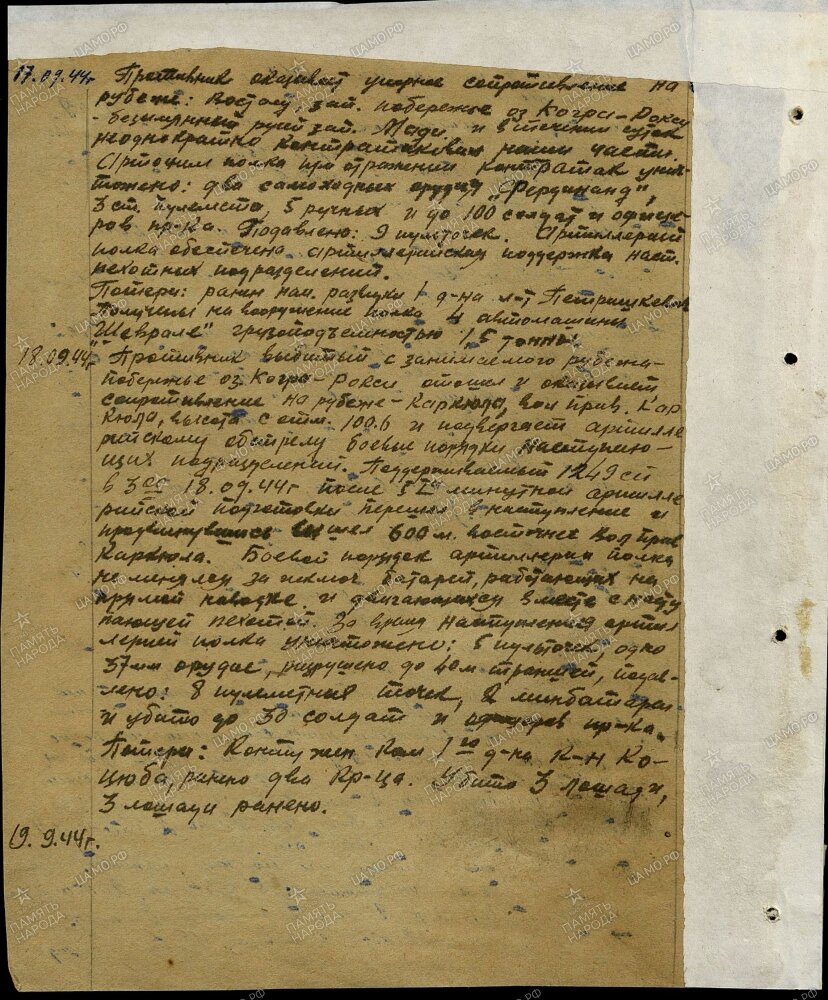 17.09.44г Противник оказывает упорное сопротивление на
рубеже: Восточн. зап. побережье оз Когра-Рокси
- безымянный руч. зап. и в течении суток
неоднократно контратаковал наши части.
Артогнем полка при отражении контратак унич-
тожено: два самоходных орудия "Фердинанд",
3 ст. пулемета, 5 ручных и до 100 солдат и офице-
ров пр-ка. Подавлено: 9 пульточек. Артиллерией
полка обеспечена артиллерийская поддержка наст.
пехотных подразделений.
Потери: ранен нач. разведки 1 д-на л-т Петришкевич
Получены на вооружение полка 4 автомашины
"Шевроле" грузоподъемностью 1,5 тонны.
18.09.44г Противник выбитый с занимаемого рубежа-
побережье оз. Когра-Рокси отошел и оказывает
сопротивление на рубеже - Каркюла, вол прав. Кар
кюла, высота с отм. 100.6 и подвергает артилле
рийскому обстрелу боевые порядки наступаю-
щих подразделений. Поддерживаемый 1249 сп
в 3 00 18.09.44г после минутной артилле
рийской подготовки перешел в наступление и
продвинувшись вышел 600 м. восточнее вол прав
Каркюла. Боевой порядок артиллерии полка
не менялся за исключ. батарей, работающих на
прямой наводке и двигающихся вместе с насту
пающей пехотой. За время наступления артил
лерией полка уничтожено: 5 пульточек, одно
37мм орудие, разрушено до 40м траншей, подав-
лено: 8 пулеметных точек, 2 минбатареи
и убито до 30 солдат и офицеров пр-ка.
Потери: Контужен Ком 1го д-на К-н Ко-
цюба, ранено два кр-ца. Убито 3 лошади,
3 лошади ранено.
19.9.44г.
ПАМЯТЬ НАРОДА
ЦАМО.РФ